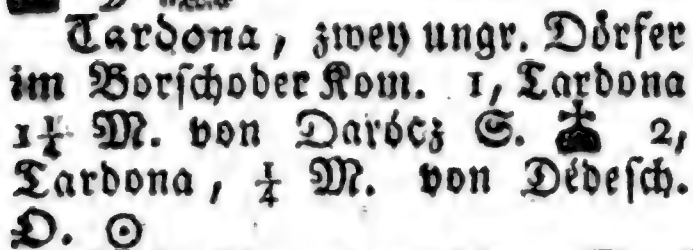 Tardona, zwey ungr. Dörfer
im Borschoder Kom. 1, Tardona
1¼ M. von Darócz S. 2,
Tardona, ¼ M. von Dédesch.
O. ☉